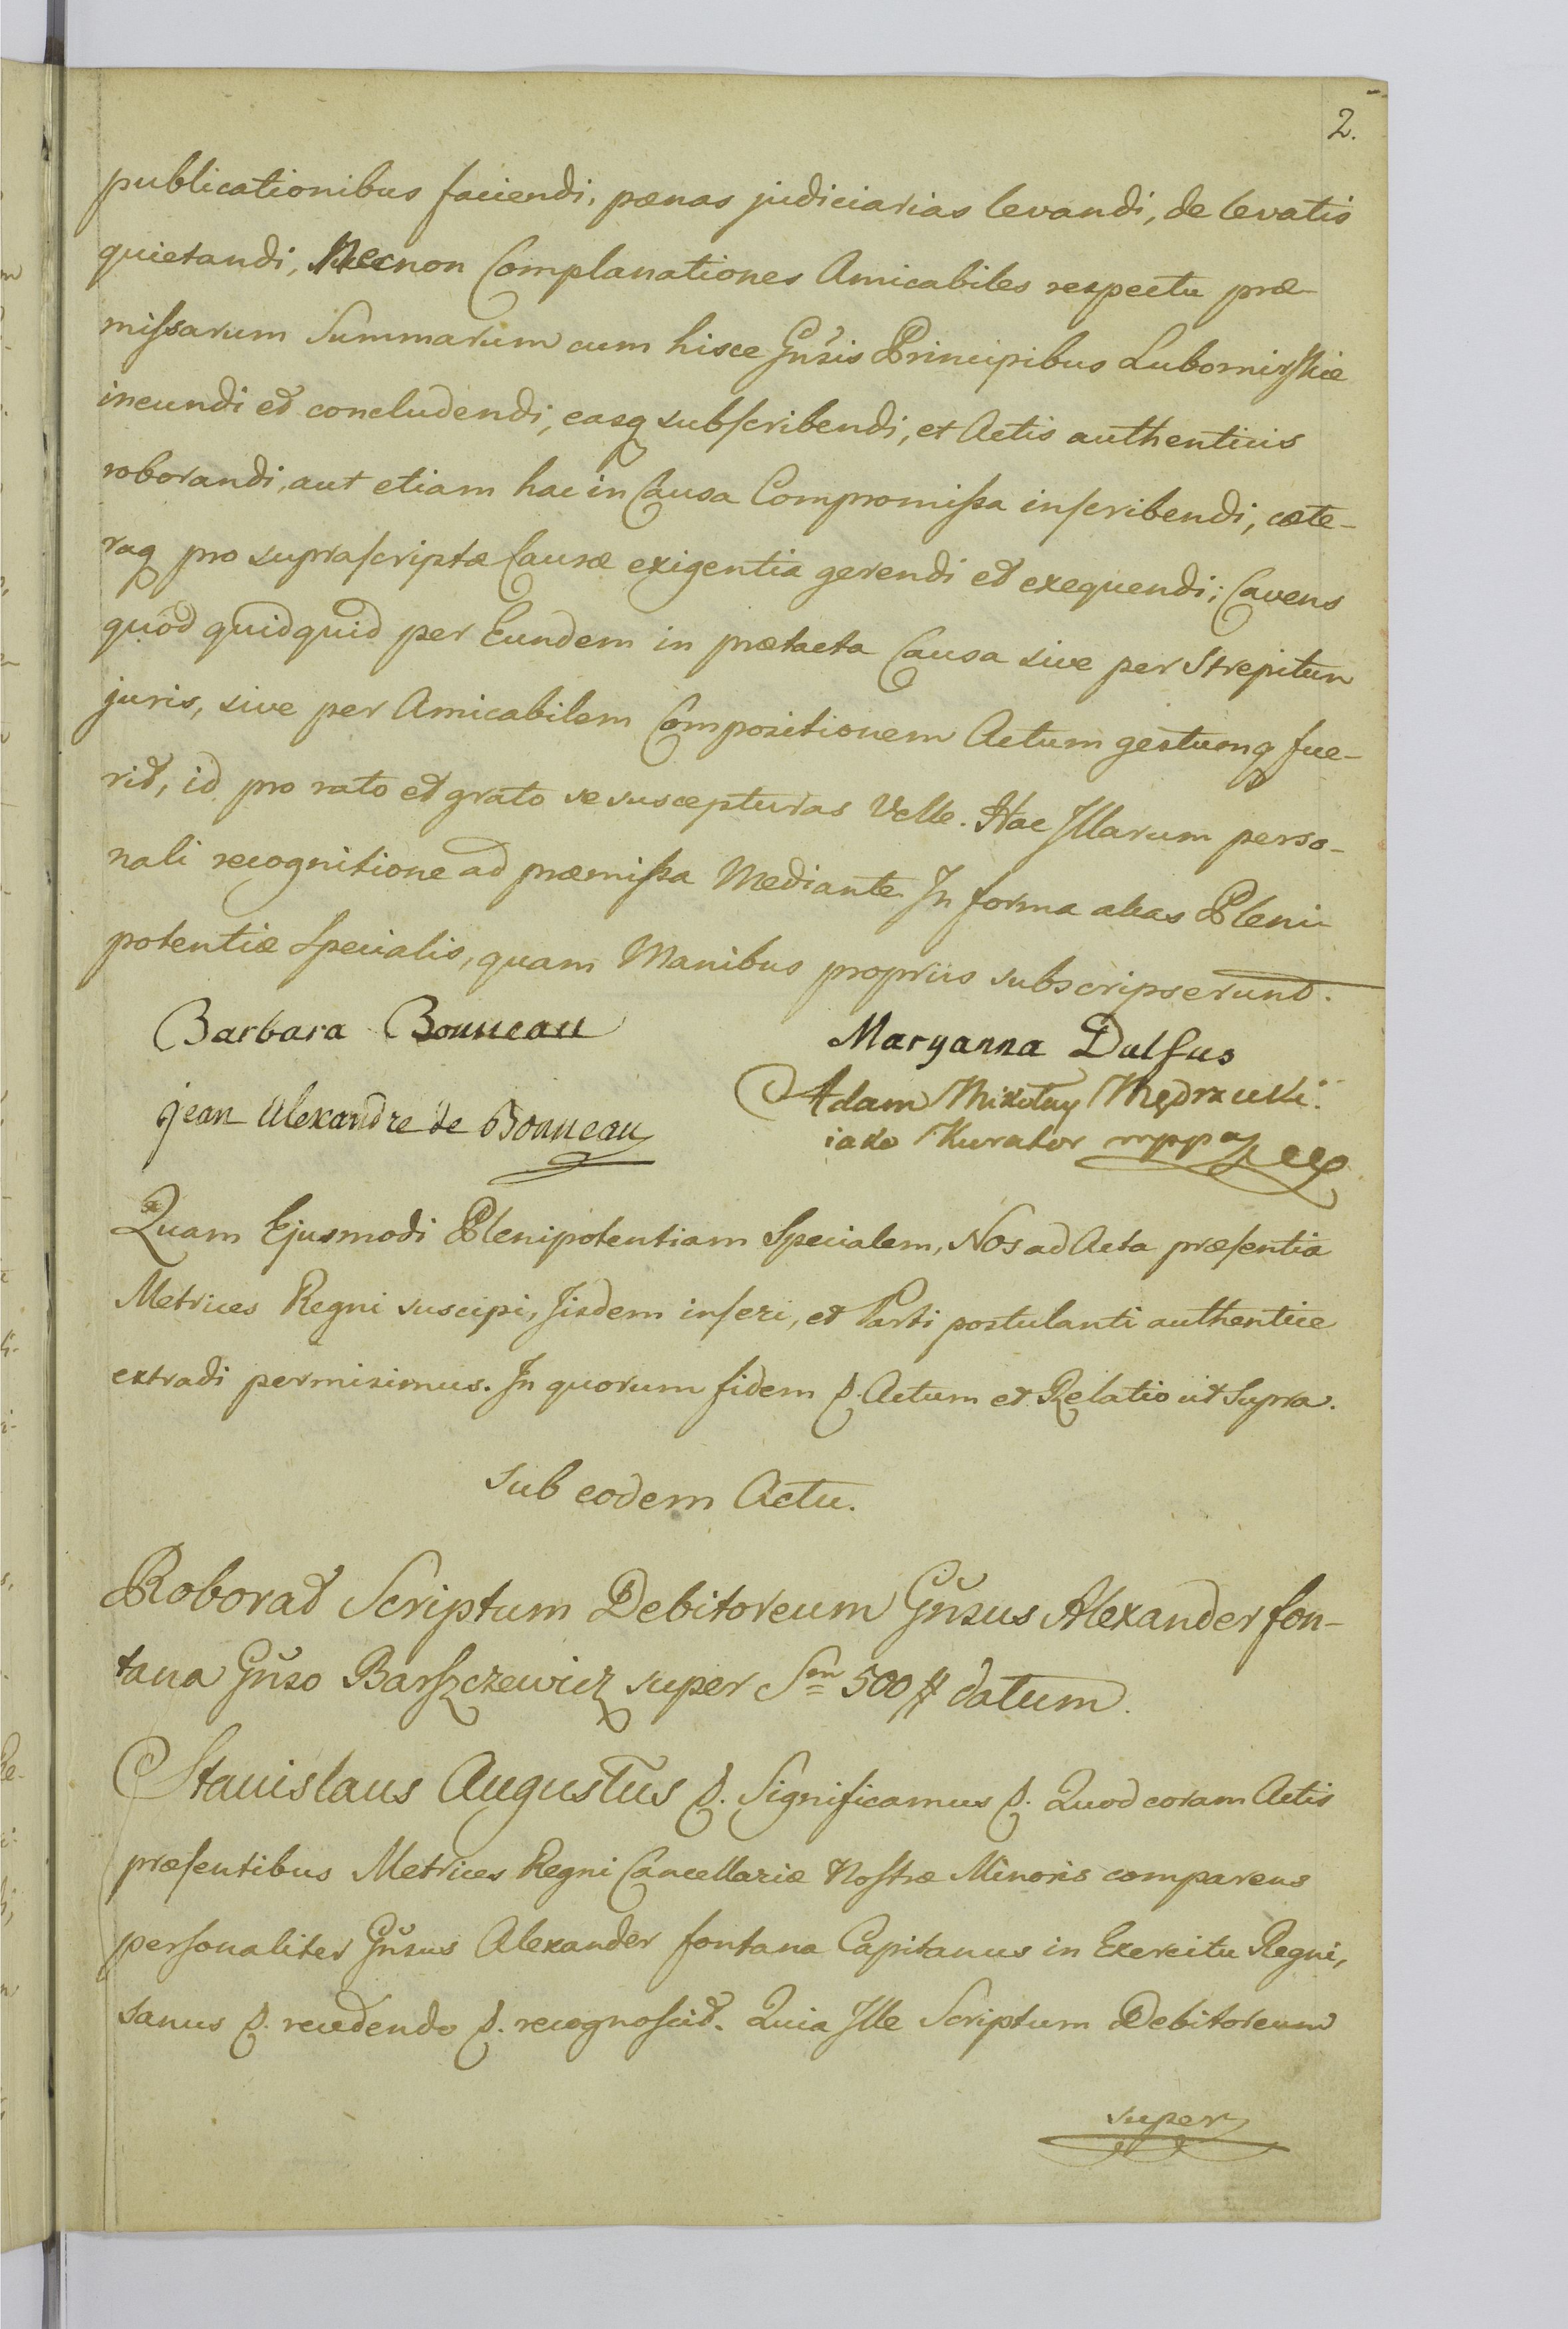 2.
publicationibus faciendi, pœnas judiciarias levandi, de levatis
quietandi, Necnon Complanationes Amicabiles respectu præ-
mißarum Summarum cum hisce Gnŕis Principibus Lubomirskie
ineundi et concludendi, easq subscribendi, et Actis authenticis
roborandi, aut etiam hac in Causa Compromißa inscribendi, cæte-
raq pro suprascriptæ Causæ exigentia gerendi et exequendi; Cavens
quod quidquid per Eundem in prætacta Causa sive per Strepitum
juris, sive per Amicabilem Compositionem Actum gestumq fue-
rit, id pro rato et grato se suscepturas Velle. Hac Illarum perso-
nali recognitione ad præmißa Mediante. In forma alias Pleni-
potentiæ Specialis, quam Manibus propriis subscripserunt.
Barbara Bonneau Maryanna Dulfus
jean Alexandre de Bonneau Adam Mikołay Mędrzecki
iako Kurator mppa
Quam Ejusmodi Plenipotentiam Specialem, Nos ad Acta præsentia
Metrices Regni suscipi, Iisdem inseri, et Parti postulanti authentice
extradi permisimus. In quorum fidem p. Actum et Relatio ut Supra.
Sub eodem Actu.
Roborat Scriptum Debitoreum Gňsus Alexander fon-
tana Gňso Barszczewicz super Sm 500 # datum.
Stanislaus Augustus p. Significamus p. Quod coram Actis
præsentibus Metrices Regni Cancellariæ Nostræ Minoris comparens
personaliter Gňsus Alexander fontana Capitanus in Exercitu Regni,
sanus p. recedendo p. recognoscit. Quia Ille Scriptum Debitoreum
super